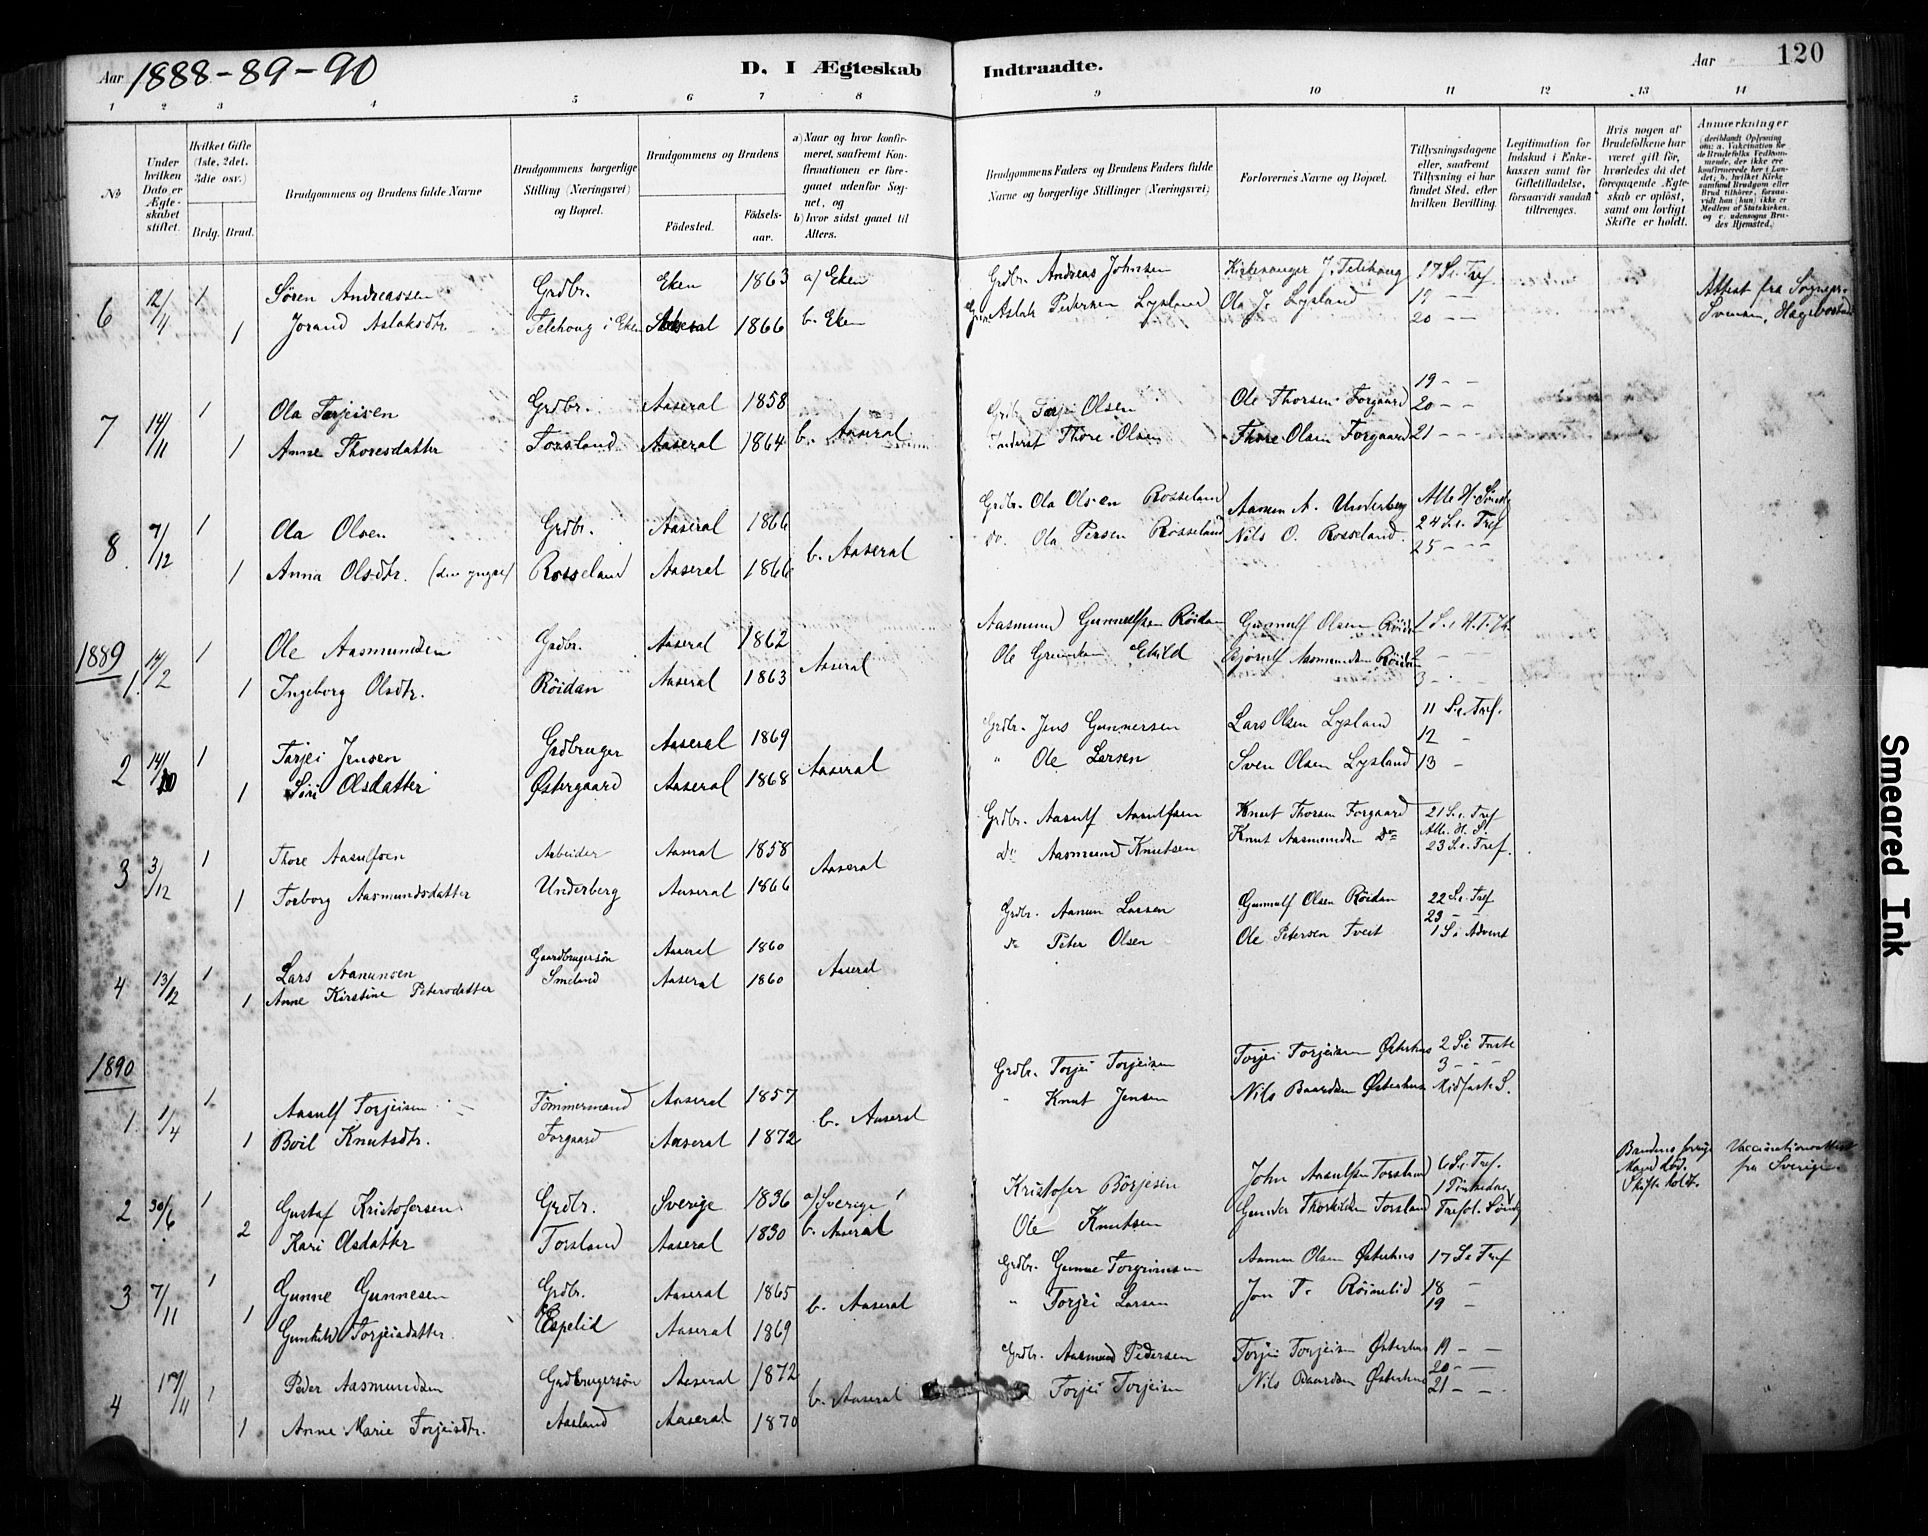 Aar 1888-89-90
D. I Ægteskab Indtraadte.
Aar
120
1 2 3 4 5 6 7 8 9 10 11 12 13 14
No
Under hvilken Dato er Ægteskabet stiftet.
Hvilket Gifte (1ste, 2det, 3die osv.)
Brdg. Brud.
Brudgommens og Brudens fulde Navne
Brudgommens borgerlige Stilling (Næringsvei) og Bopæl.
Brudgommens og Brudens
Födested. Födselsaar.
a) Naar og hvor konfirmeret, saafremt Konfirmationen er foregaaet udenfor Sognet, og
b) hvor sidst gaaet til Alters.
Brudgommens Faders og Brudens Faders fulde Navne og borgerlige Stillinger (Næringsvei)
Forlovernes Navne og Bopæl.
Tillysningsdagene eller, saafremt Tillysning ei har fundet Sted, efter hvilken Bevilling.
Legitimation for Indskud i Enkekassen samt for Giftetilladelse, forsaavidt saadan tiltrænges.
Hvis nogen af Brudefolkene har været gift för, hvorledes da det foregaaende Ægteskab er oplöst, samt om lovligt Skifte er holdt.
Anmærkninger (deriblandt Oplysning om: a. Vakcination for de Brudefolks Vedkommende, der ikke ere konfirmerede her i Landet; b. hvilket Kirkesamfund Brudgom eller Brud tilhörer, forsaavidt han (hun) ikke er Medlem af Statskirken, og c. udensogns Brudes Hjemsted.)
6 12/4 1 Søren Andreassen Grdbr. Eken 1863 a) Eken Grdbr. Andreas Johnsen Kirkesanger J. Telehoug 17 S.e. Tref Attest fra Sognepr.
1 Jorand Aslaksdtr. Telehoug i Eken Aaseral 1866 b. Eken Aslak Pedersen Lysland Ola J. Lysland 19 - - Svensen, Hægebostad
20 - -
7 14/11 1 Ola Tarjeisen Grdbr. Aaseral 1858 b. Aaseral Grdbr. Tarjei Olsen Ole Thorsen Forgaard 19 - -
20 - -
1 Anne Thoresdatter Torsland Aaseral 1864 Inderst Thore Olsen Thore Olsen Forgaard 21 - - -
8 7/12 1 Ola Olsen Grdbr. Aaseral 1866 b. Aaseral Grdbr. Ola Olsen Rosseland Aanen A. Underberg Alle H. Sönd.
24 S.e. Tref
1 Anna Olsdtr. (den yngre) Rosseland Aaseral 1866 do. Ola Persen Rosseland Nils O. Rosseland. 25 - - -
1889
1. 14/2 1 Ole Aasmundsen Grdbr. Aaseral 1862 Aaseral Aasmund Gunnulfsen Röidan Gunnulf Olsen Röidan 1 S.e. H.T.K.
1 Ingeborg Olsdtr. Röidan Aaseral 1863 Ole Ekild Björnulf Aasmundsen Röidan 2 - -
3 - -
2 14/10 1 Tarjei Jensen Grdbruger Aaseral 1869 Aaseral Grdbr. Jens Gunnersen Lars Olsen Lysland 11 S.e. Tref.
12 -
1 Siri Olsdatter Østergaard Aaseral 1868 " Ole Larsen Sven Olsen Lysland 13 -
3 3/12 1 Thore Aasulfsen Arbeider Aaseral 1858 Aaseral Grdbr. Aasulf Aasulfsen Knut Thorsen Forgaard 21 S.e. Tref
Alle H. S.
1 Torborg Aasmundsdatter Underberg Aaseral 1866 Do Aasmund Knutsen Knut Aasmundsen Do 23 S.e. Tref.
4 13/12 1 Lars Aanunsen Gaardbrugersön Aaseral 1860 Aaseral Grdbr. Aanun Larsen Gunnulf Olsen Röidan 22 S.e. Tref
23 - -
1 Anne Kirstine Petersdatter Smeland Aaseral 1860 do Peter Olsen Ole Petersen Tveit 1 S. i Advent
1890
1. 1/4 1 Aasulf Torjeisen Tömmermand Aaseral 1857 b. Aaseral Grdbr. Torjei Torjeisen Torjei Torjeisen Østerhus 2 S. i Faste
3 - -
1 Boil Knutsdtr. Forgaard Aaseral 1872 " Knut Jensen Nils Baardsen Østerhus Midfaste S.
2 30/6 1 Gustaf Kristofersen Grdbr. Sverige 1836 a) Sverige Kristofer Börjesen John Aasulfsen Torsland 6 S.e. Tref. Brudens forrige Mand död. Skifte holdt. Vaccinationsattest fra Sverige
1 Pinsedag
2 Kari Olsdatter Torsland Aaseral 1830 b. Aaseral Ole Knutsen Gunder Thorkildsen Torsland Trefol. Sönd.
3 7/11 1 Gunne Gunnesen Grdbr. Aaseral 1865 b. Aaseral Grdbr. Gunne Torgrimsen Aanun Olsen Østerhus 17 S.e. Tref
18 -
1 Gunhild Torjeisdatter. Espelid Aaseral 1869 " Torjei Larsen Jon T. Röinelid 19 -
4 17/11 1 Peder Aasmundsen Grdbrugersön Aaseral 1872 b. Aaseral Grdbr. Aasmund Pedersen Torjei Torjeisen Østerhus 19 - -
20 - -
1 Anne Marie Torjeisdtr. Aasland Aaseral 1870 Torjei Torjeisen Nils Baardsen Østerhus 21 - -
Smeared Ink